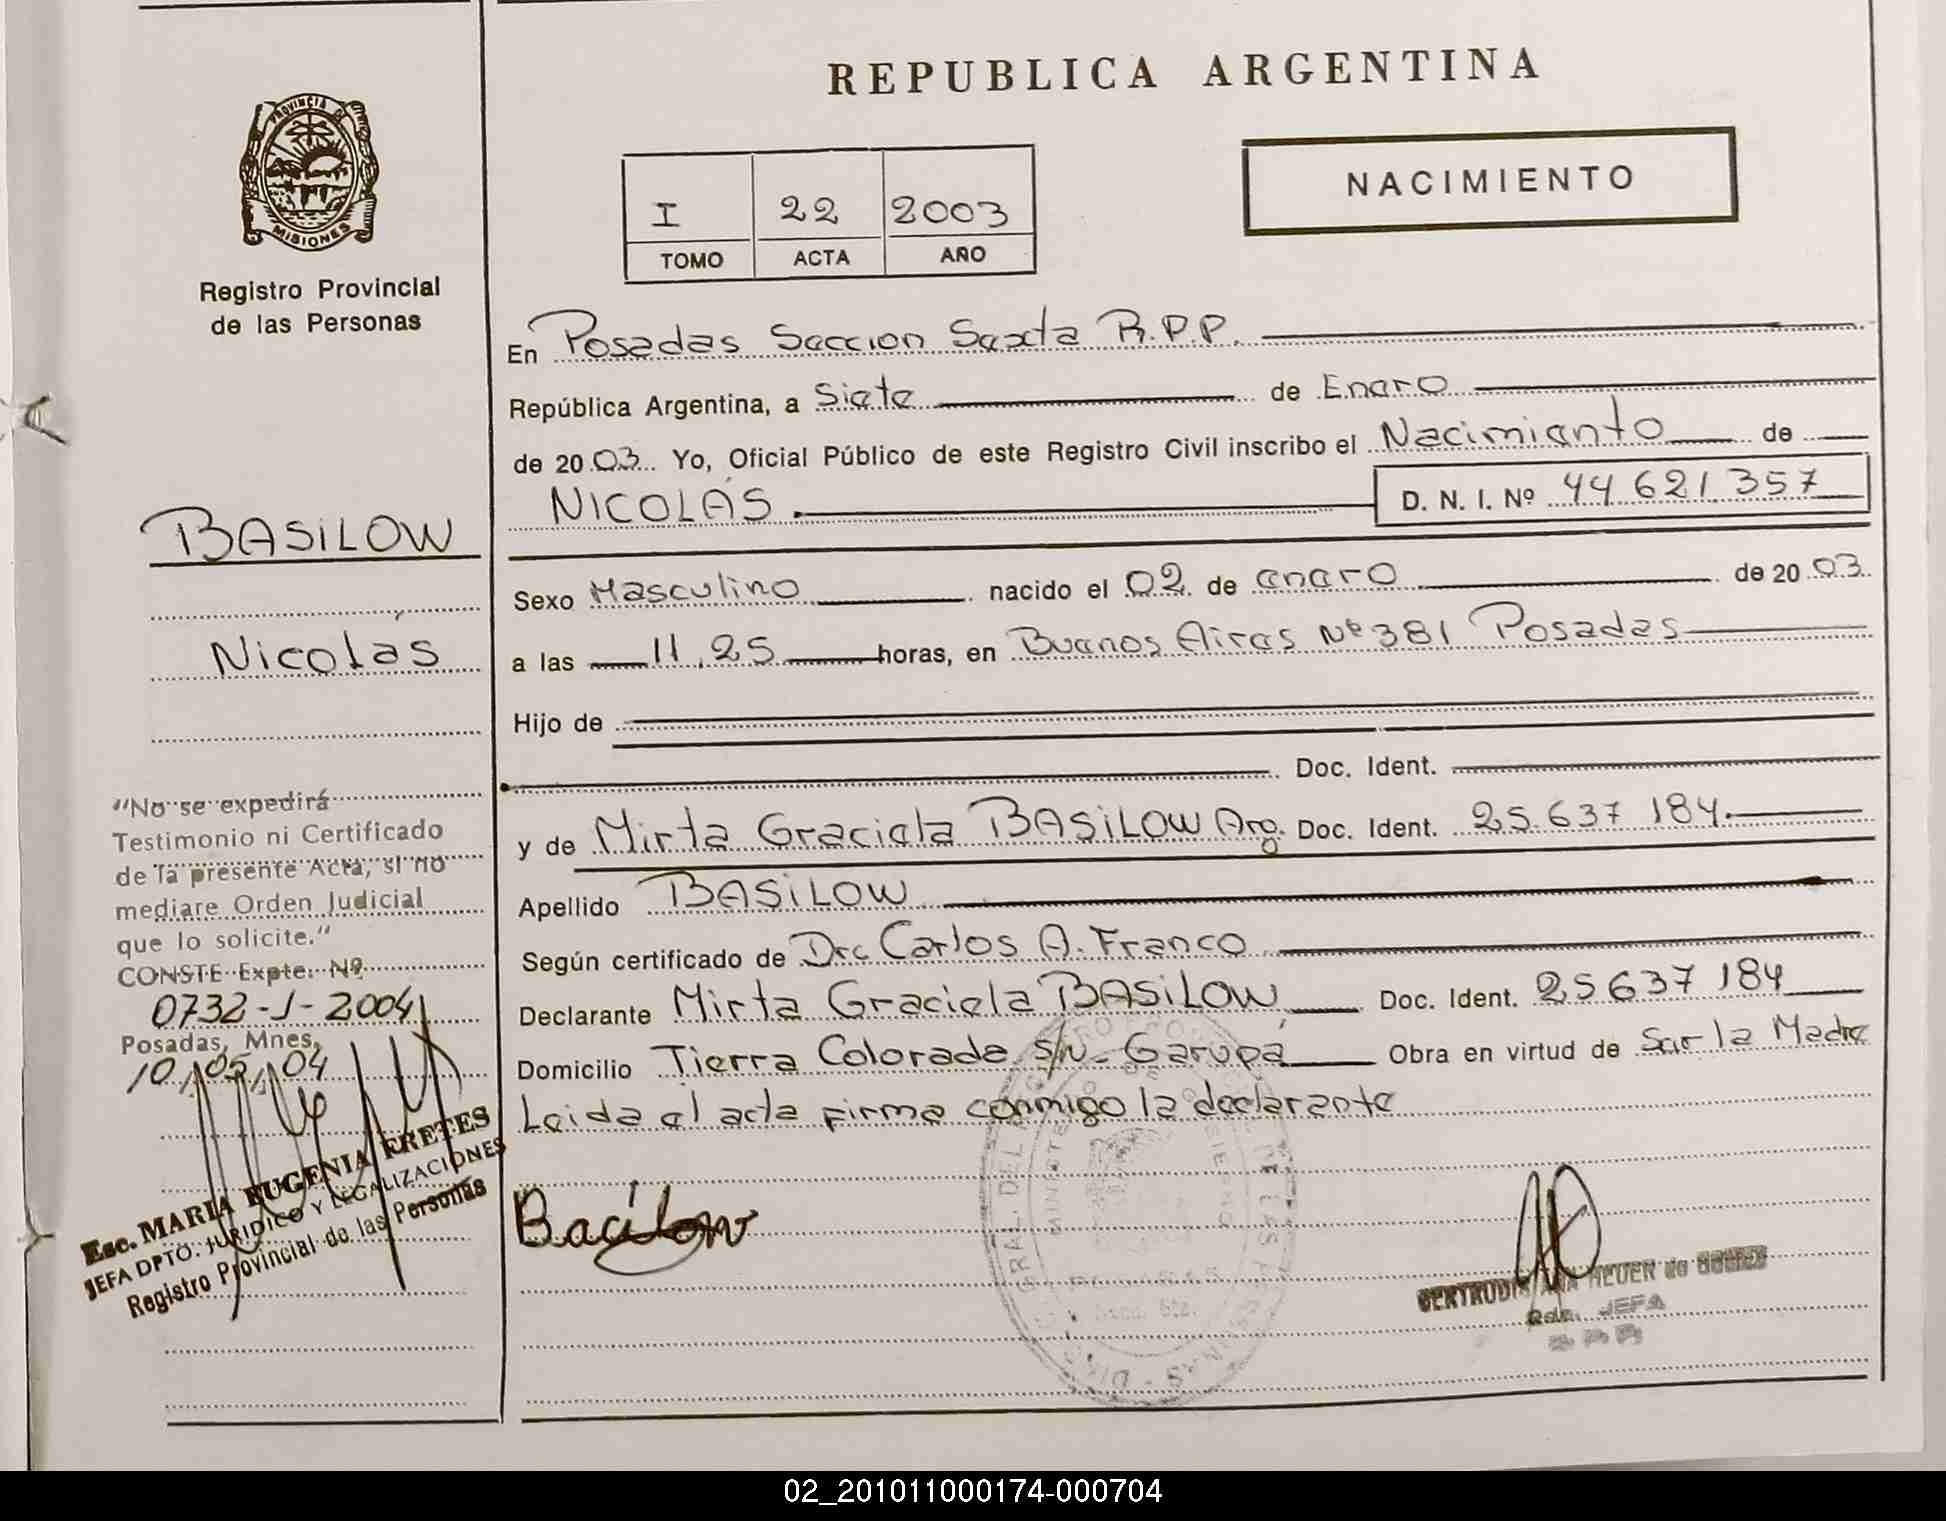 REPUBLICA ARGENTINA
PROVINCIA DE
MISIONES
Registro Provincial
de las Personas
NACIMIENTO
I 22 2003
TOMO ACTA AÑO
En Posadas Seccion Sexta R.P.P.
República Argentina, a Siete de Enero
de 20 03 Yo, Oficial Público de este Registro Civil inscribo el Nacimiento de
NICOLÁS. D. N. I. Nº 44 621 357
BASiLOW
Nicolás
Sexo Masculino nacido el 02 de enero de 20 03
a las 11,25 horas, en Buenos Aires Nº 381 Posadas
Hijo de
Doc. Ident.
y de Mirta Graciela BASiLOW Arg. Doc. Ident. 25.637 184.
Apellido BASiLOW
Según certificado de Dr. Carlos A. Franco
Declarante Mirta Graciela BASiLOW Doc. Ident. 25 637 184
Domicilio Tierra Colorada s/n. Garupá Obra en virtud de Ser la Madre
Leida el acta firma conmigo la declarante
"No se expedirá
Testimonio ni Certificado
de la presente Acta, si no
mediare Orden Judicial
que lo solicite."
CONSTE Expte. Nº
0732-J-2004
Posadas, Mnes,
10/05/04
Esc. MARIA EUGENIA FRETES
JEFA DPTO. JURIDICO Y LEGALIZACIONES
Registro Provincial de las Personas
Bacilow
JEFA
02_201011000174-000704